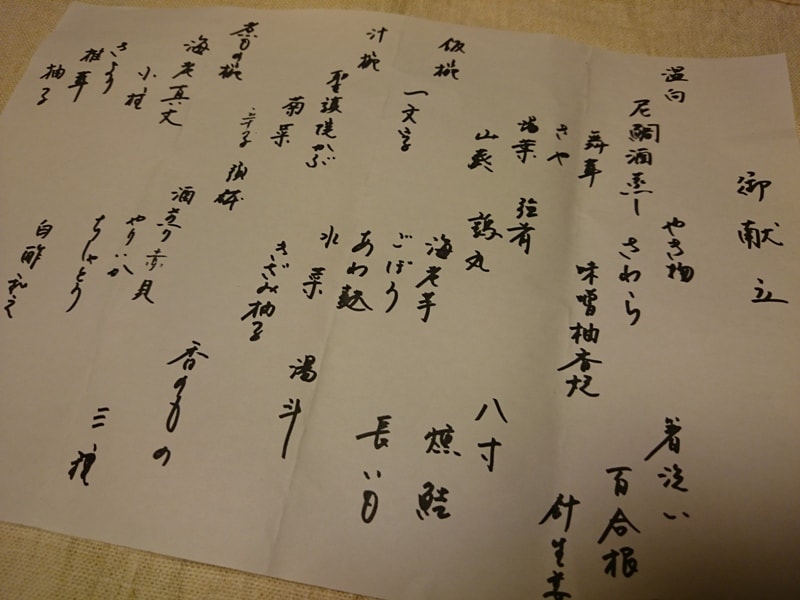 御献立
温向
尼鯛酒蒸し
舞茸
さや
山葵
飯椀
一文字
汁椀
聖護院かぶ
菊菜
辛子
煮もの椀
海老真丈
小柱
きより
椎茸
柚子
やき物
さわら
味噌柚香焼
強肴
鶉丸
海老芋
ごぼう
あわ麩
水菜
きざみ柚子
預鉢
酒煎り赤貝
やりいか
ちしゃとう
白酢和え
箸洗い
百合根
針生姜
八寸
燻鮭
長いも
湯斗
香のもの
三種